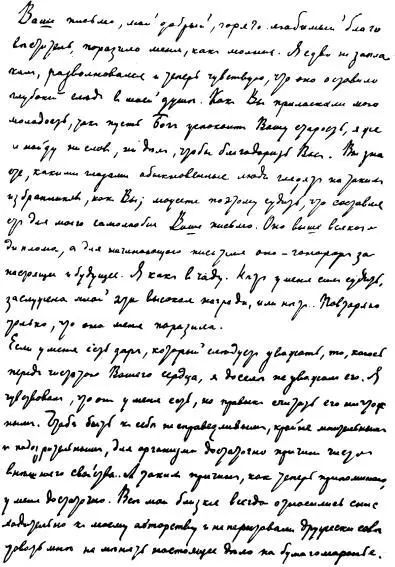 Ваше письмо, мой добрый, горячо любимый благо
вестител, поразило меня, как молния. Я едва не запла
кал, разволновался и теперь чувствую, что оно оставило
глубокий след в моей душе. Как Вы приласкали мою
молодость, так пусть Бог успокоит Вашу старость, я же
не найду ни слов, ни дел, чтобы благодарить Вас. Вы зна
ете, какими глазами обыкновенные люди глядят на таких
избранников, как Вы; можете поэтому судить, что составля
ет для моего самолюбия Ваше письмо. Оно выше всякого
диплома, а для начинающего писателя оно — гонорар за
настоящее и будущее. Я как в чаду. Нет у меня сил судить,
заслужена мной эта высокая награда, или нет... Повторяю
только, что она меня поразила.
Если у меня есть дар, который следует уважать, то, каюсь
перед чистотою Вашего сердца, я доселе не уважал его. Я
чувствовал, что он у меня есть, но привык считать его ничтож
ным. Чтоб быть к себе несправедливым, крайне мнительным
и подозрительным, для организма достаточно причин чисто
внешнего свойства. А таких причин, как теперь припоминаю,
у меня достаточно. Все мои близкие всегда относились снис
ходительно к моему авторству и не переставали дружески сове
товать мне не менять настоящее дело на бумагомаранье.